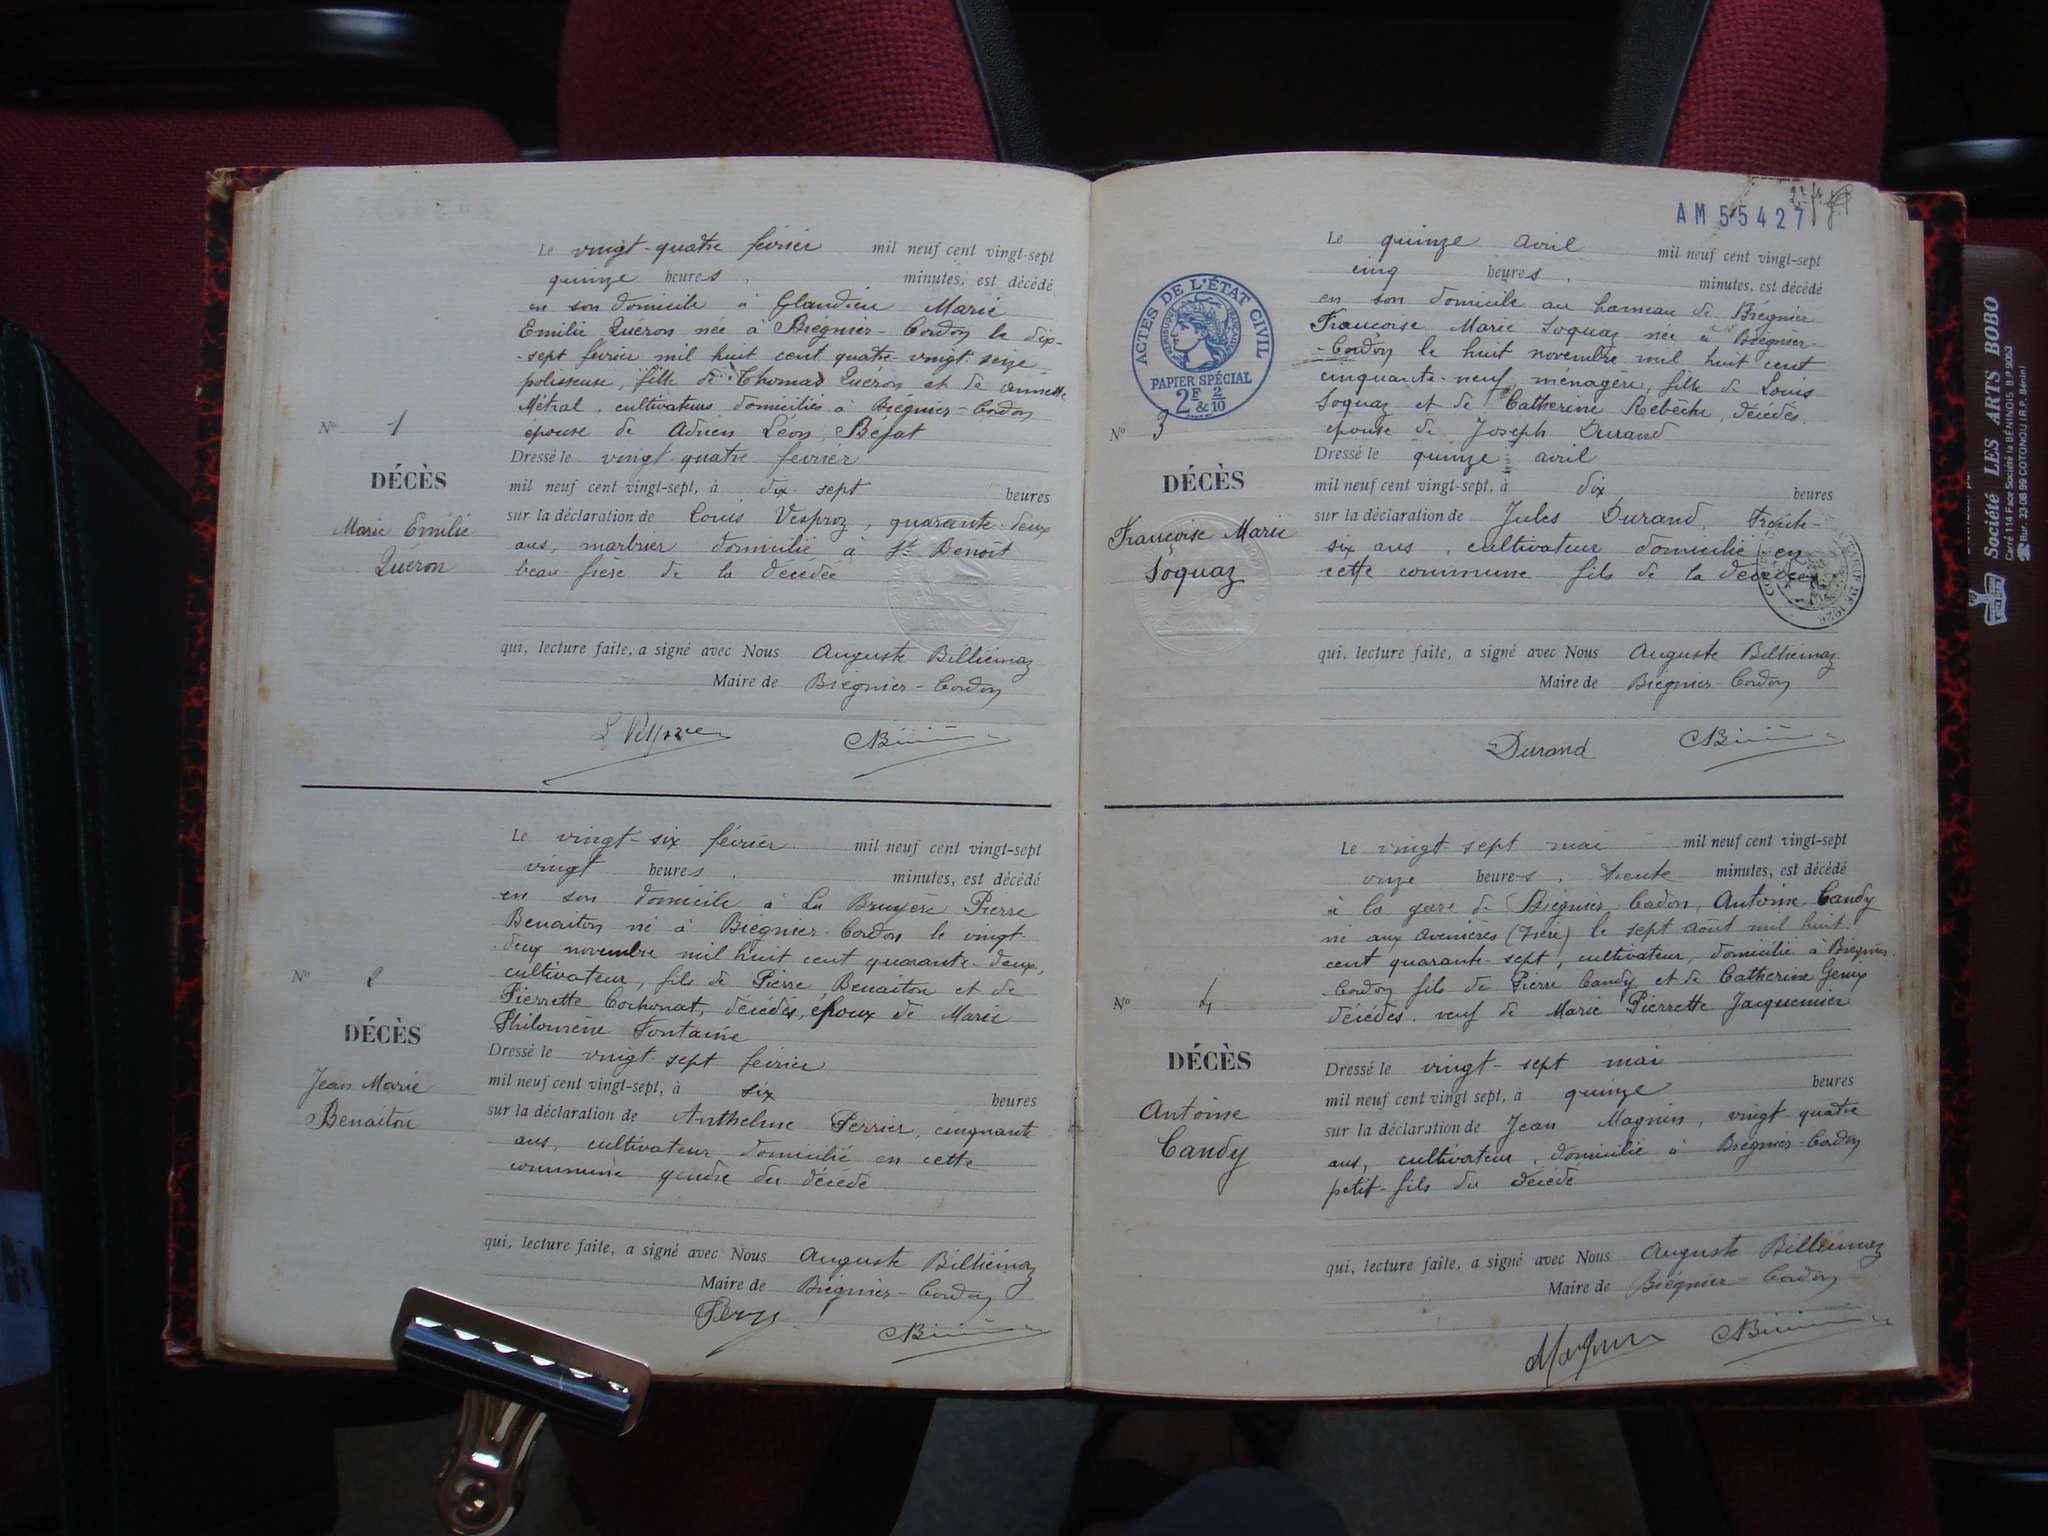 Le vingt-quatre février mil neuf cent vingt-sept
quinze heures, minutes, est décédé
en son domicile à Glandieu Marie
Emilie Quéron née à Brégnier-Cordon le dix-
-sept février mil huit cent quatre-vingt-seize,
polisseuse, fille de Thomas Quéron et de Annette
Métral, cultivateurs domiciliés à Brégnier-Cordon
épouse de Adrien Léon Bejat
N° 1
DÉCÈS
Marie Emilie
Quéron
Dressé le vingt-quatre février
mil neuf cent vingt-sept, à dix-sept heures
sur la déclaration de Louis Vesproz, quarante-deux
ans, marbrier domicilié à St Benoît
beau-frère de la décédée
qui, lecture faite, a signé avec Nous Auguste Billiémaz
Maire de Brégnier-Cordon
Le vingt-six février mil neuf cent vingt-sept
vingt heures, minutes, est décédé
en son domicile à La Bruyère Pierre
Benaiton né à Brégnier-Cordon le vingt-
-deux novembre mil huit cent quarante-deux,
cultivateur, fils de Pierre Benaiton et de
Pierrette Cochonat, décédés, époux de Marie
Philomène Fontaine
N° 2
DÉCÈS
Jean Marie
Benaiton
Dressé le vingt-sept février
mil neuf cent vingt-sept, à six heures
sur la déclaration de Anthelme Perrier, cinquante
ans, cultivateur domicilié en cette
commune gendre du décédé
qui, lecture faite, a signé avec Nous Auguste Billiémaz
Maire de Brégnier-Cordon
AM 55427
ACTES DE L'ÉTAT CIVIL
RÉPUBLIQUE FRANÇAISE
PAPIER SPÉCIAL
2F & 2/10
Le quinze avril mil neuf cent vingt-sept
cinq heures, minutes, est décédé
en son domicile au hameau de Brégnier
Françoise Marie Soquaz née à Brégnier-
-Cordon le huit novembre mil huit cent
cinquante-neuf, ménagère, fille de Louis
Soquaz et de Catherine Rebêche, décédés,
épouse de Joseph Durand
N° 3
DÉCÈS
Françoise Marie
Soquaz
Dressé le quinze avril
mil neuf cent vingt-sept, à dix heures
sur la déclaration de Jules Durand, trente-
six ans, cultivateur domicilié en
cette commune fils de la décédée
qui, lecture faite, a signé avec Nous Auguste Billiémaz
Maire de Brégnier-Cordon
Durand
Le vingt-sept mai mil neuf cent vingt-sept
onze heures, trente minutes, est décédé
à la gare de Brégnier-Cordon, Antoine Candy
né aux Avenières (Isère) le sept août mil huit
cent quarante-sept, cultivateur, domicilié à Brégnier-
-Cordon fils de Pierre Candy et de Catherine Genix
décédés. veuf de Marie Pierrette Jacquemier
N° 4
DÉCÈS
Antoine
Candy
Dressé le vingt-sept mai
mil neuf cent vingt sept, à quinze heures
sur la déclaration de Jean Magnin, vingt-quatre
ans, cultivateur, domicilié à Brégnier-Cordon
petit-fils du décédé
qui, lecture faite, a signé avec Nous Auguste Billiémaz
Maire de Brégnier-Cordon
Magnin
Société LES ARTS BOBO
Carré 114 Face Société la BÉNINOIS B.P 9063
Bur. 33 06 89 COTONOU / R.P. Bénin